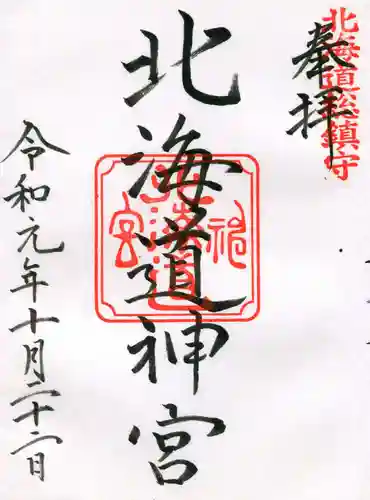 奉拝
北海道総鎮守
北海道神宮
北海道神宮
令和元年十月二十二日